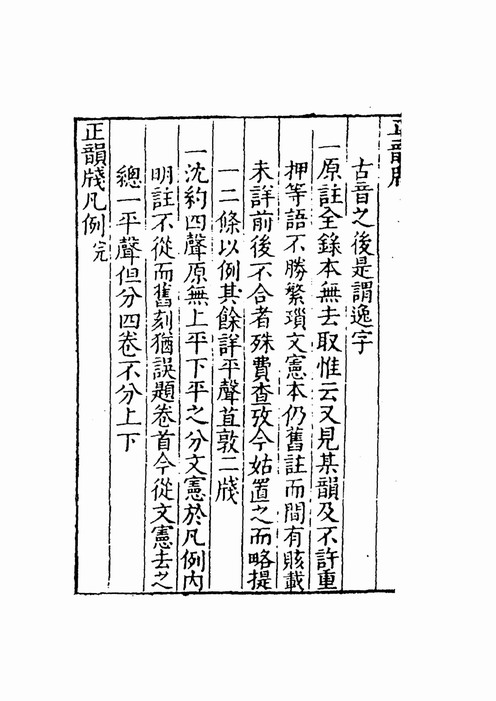 正韻牋
古音之後是謂逸字
一原註全錄本無去取惟云又見某韻及不許重
押等語不勝繁瑣文憲本仍舊註而間有賅載
未詳前後不合者殊費查攷今姑置之而略提
一二條以例其餘詳平聲苴敦二牋
一沈約四聲原無上平下平之分文憲於凡例內
明註不從而舊刻猶誤題卷首今從文憲去之
總一平聲但分四卷不分上下
正韻牋凡例完